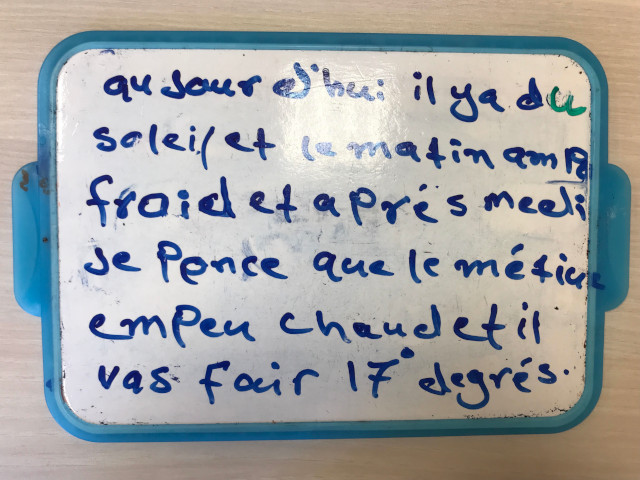 aujourd'hui il ya du
soleil et le matin
froid et aprés medi
Je Pence que le
empeu chaud et il
vas fair 17° degrés.